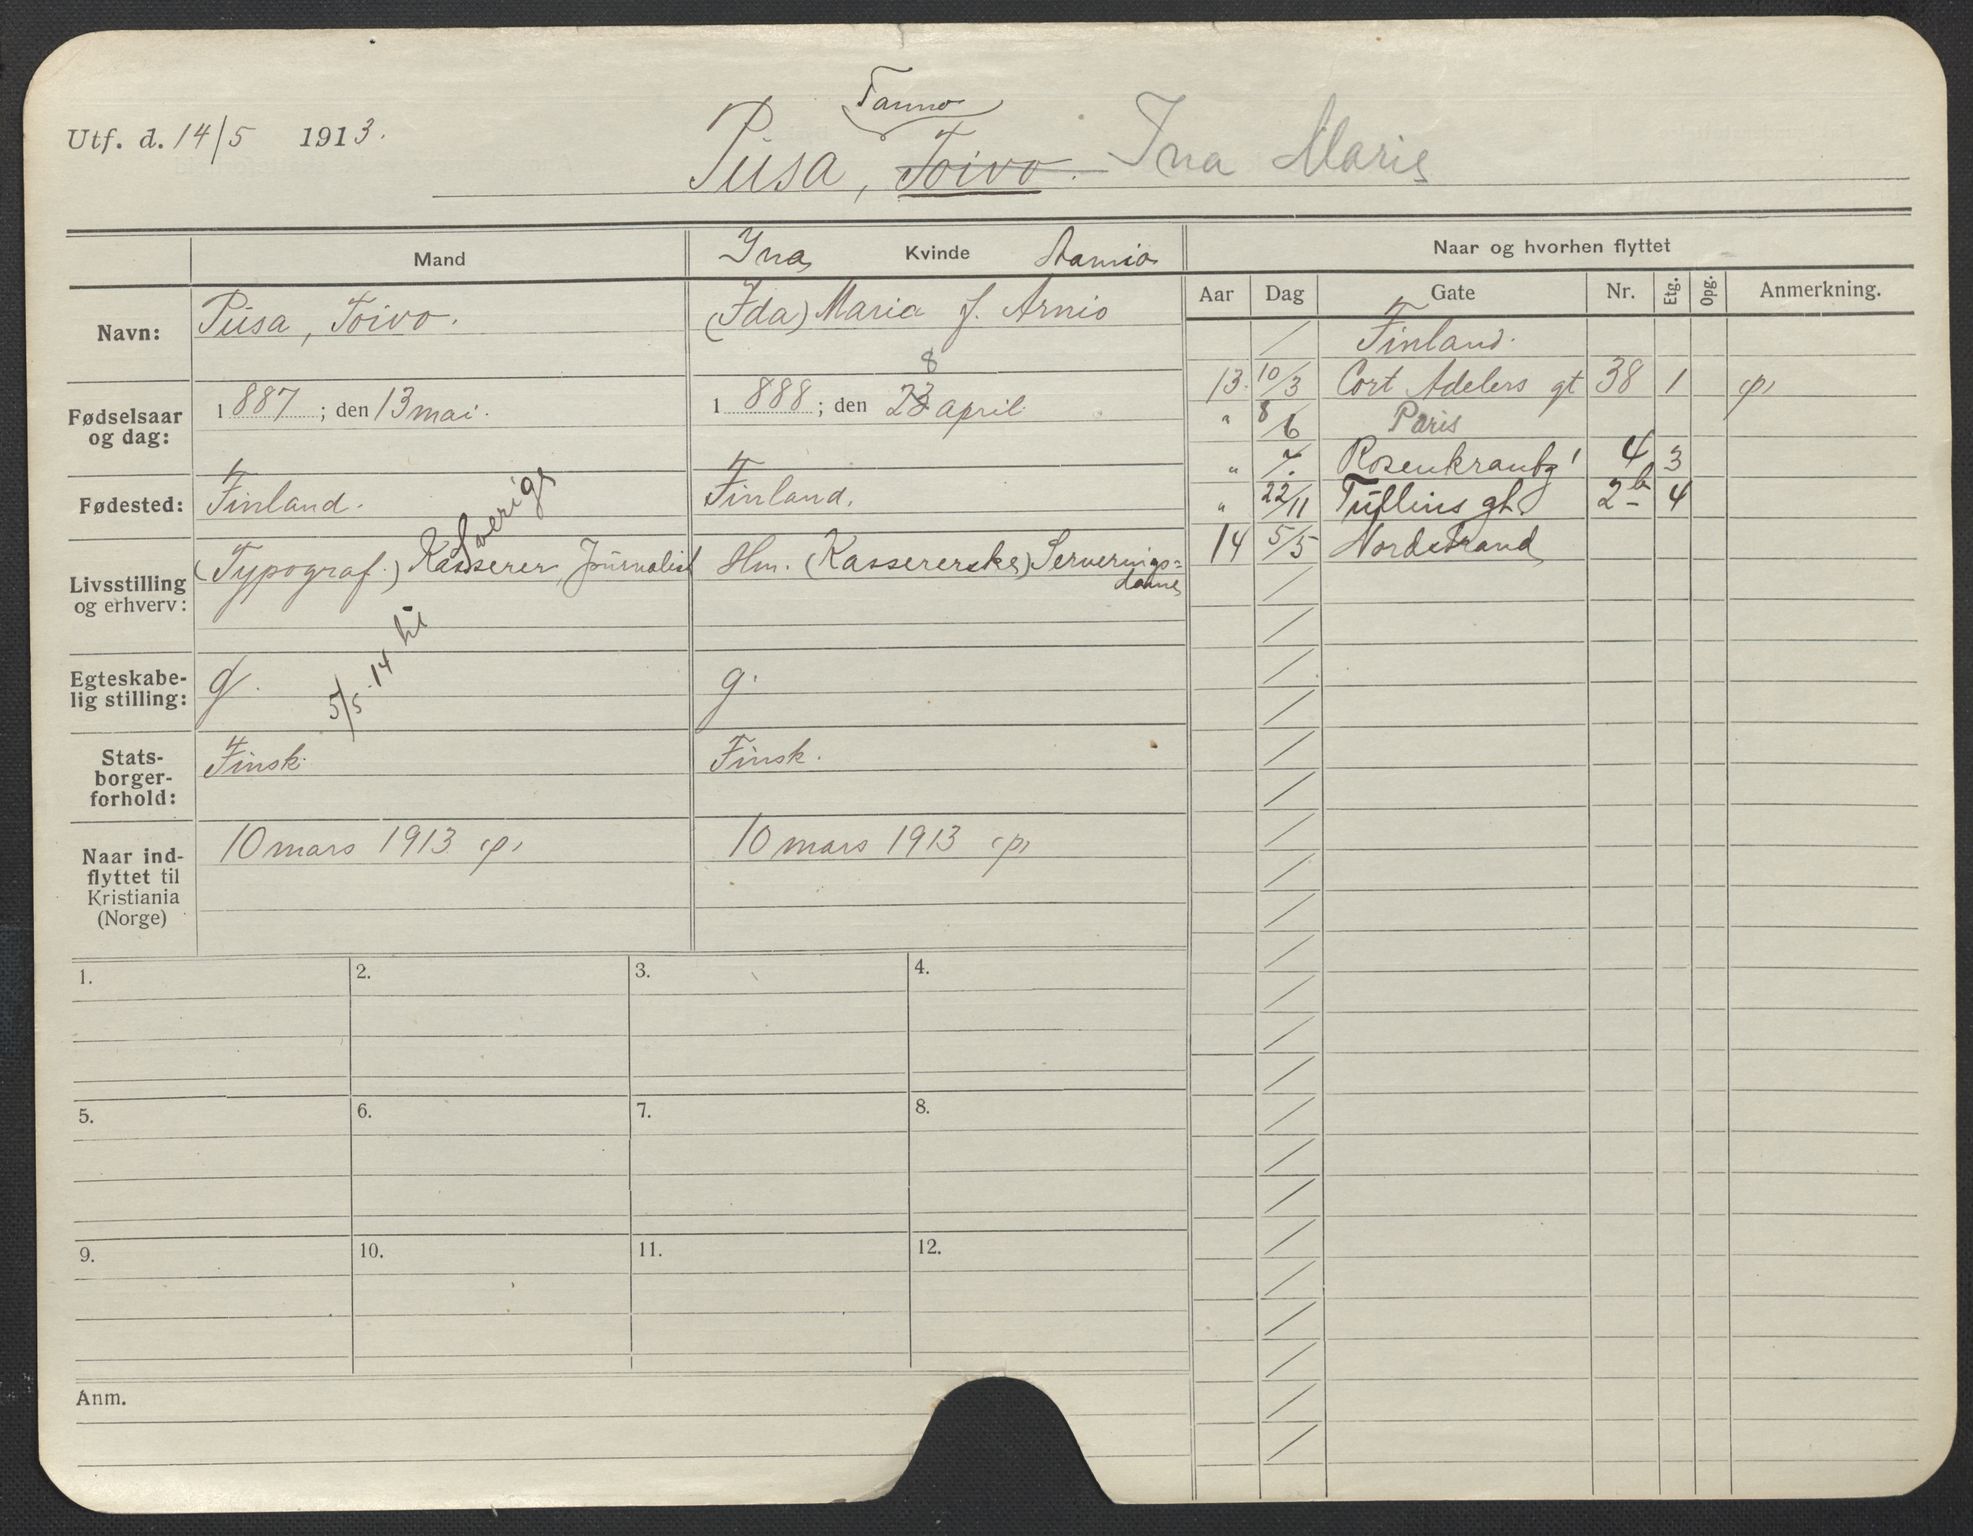 Utf. d. 14/5 1913.
Tanno
Piisa, Toivo. Ina Marie
Mand
Ina Kvinde
Naar og hvorhen flyttet
Navn:
Piisa, Toivo.
(Ida) Maria f. Arnio
Fødselsaar og dag:
1887; den 13 mai.
8
1888; den 23 april
Fødested:
Finland.
Finland.
Livsstilling og erhverv:
(Typograf.) Kasserer, Journalist
Hm. (Kassererske) Serverings=
dame
5/5-14 til Sverige
Egteskabe-
lig stilling:
g.
g.
Stats-
borger-
forhold:
Finsk.
Finsk.
Naar ind-
flyttet til
Kristiania
(Norge)
10 mars 1913 (p)
10 mars 1913 (p)
Aar Dag Gate Nr. Etg. Opg. Anmerkning.
/ Finland.
13. 10/3 Cort Adelers gt 38 1 (p)
" 8/6 Paris
" /7. Rosenkrantzg' 4 3
" 22/11 Tullins gt. 2b 4
14 5/5 Nordstrand
1. 2. 3. 4.
5. 6. 7. 8.
9. 10. 11. 12.
Anm.